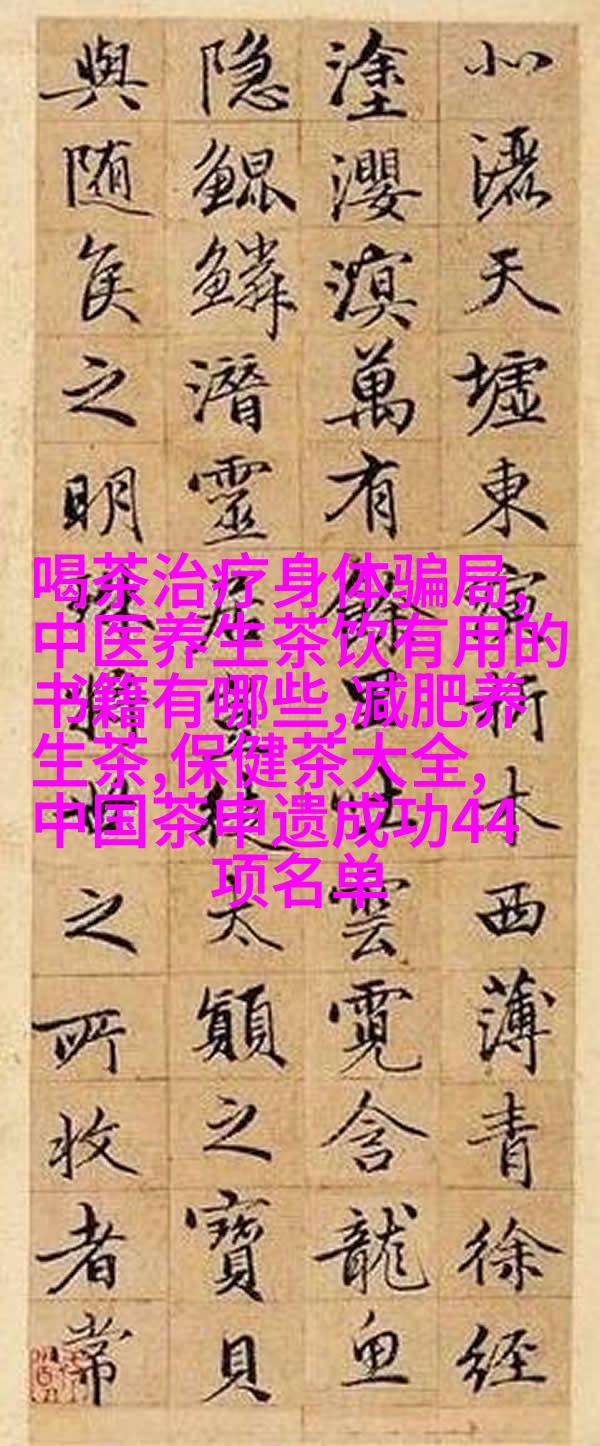 北灑天墟東演析木西薄青徐經
塗瀴溟萬有餘吐雲霓含龍魚
隐鯤鱗潛靈居豈徒太顛之寶貝
與随侯之明珠將世之所收者常
喝茶治疗身体骗局,
中医养生茶饮有用的
书籍有哪些,减肥养
生茶,保健茶大全,
中国茶申遗成功44
项名单